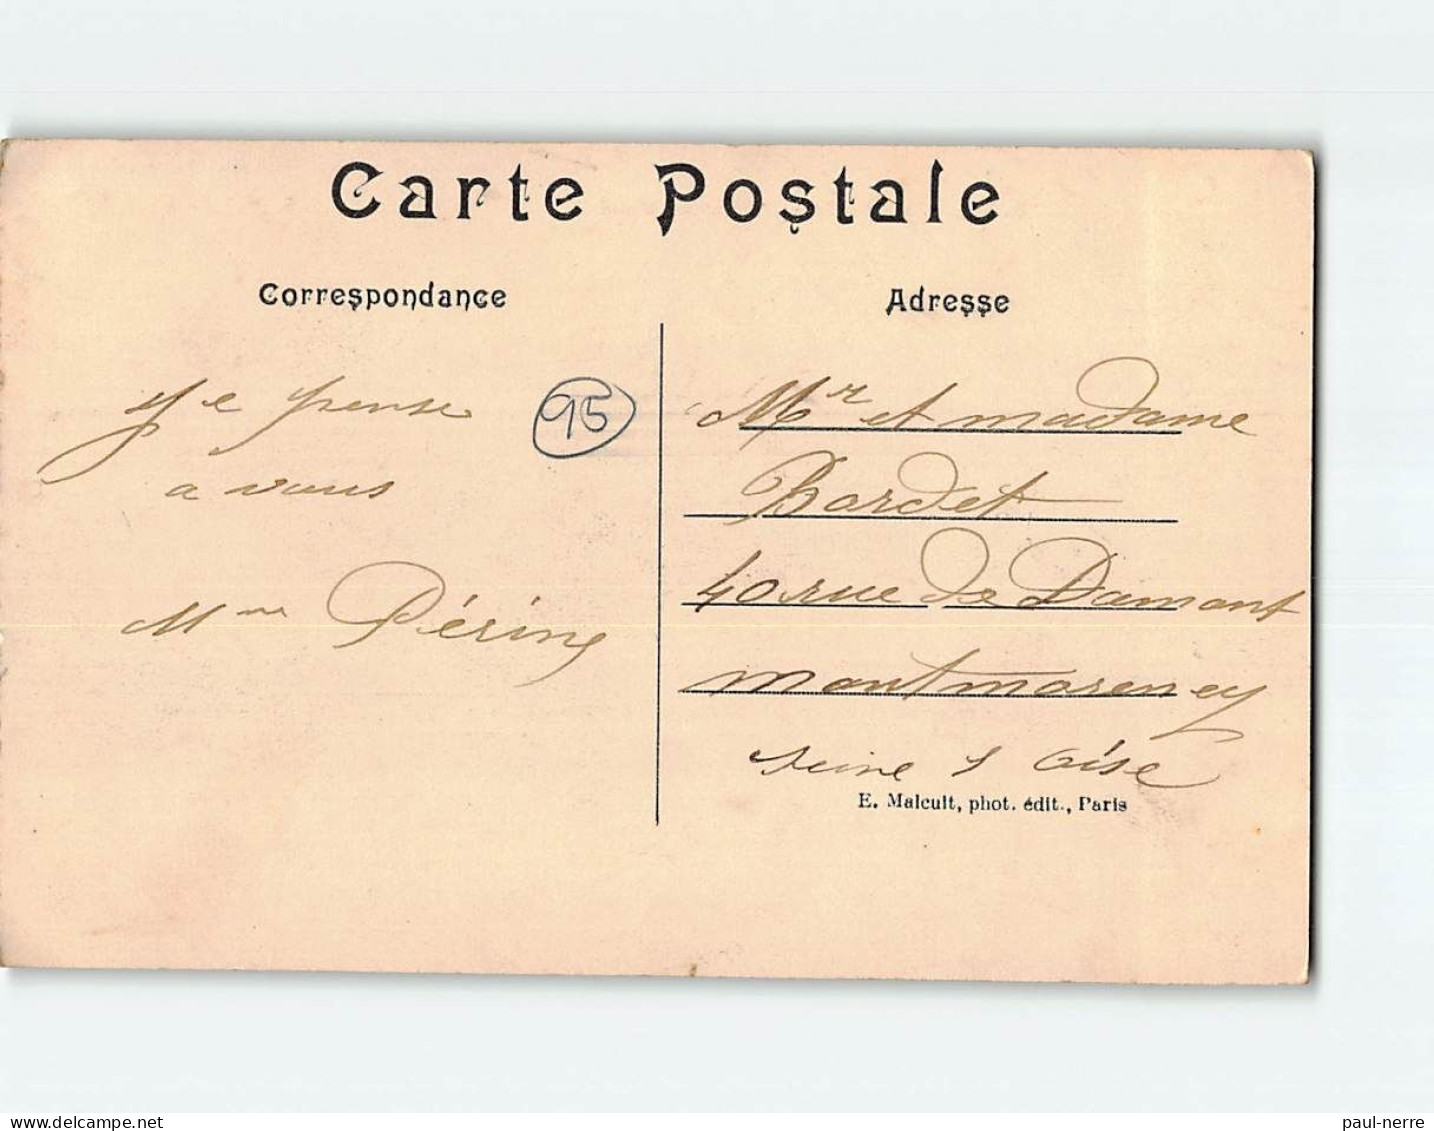 Carte Postale
Correspondance
Adresse
Je pense
a vous
Mme Périne
95
Mr et madame
Bardet
40 rue de Damont
montmorency
seine & Oise
E. Malcuit, phot. édit., Paris
delcampe.net
paul-nerre